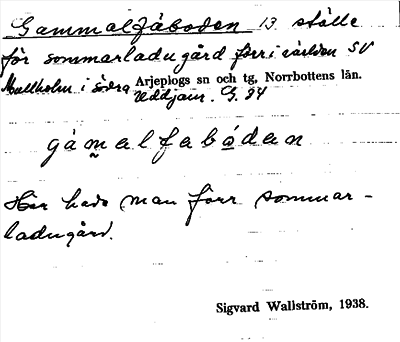 Gammalfäboden 13 ställe
för sommarladugård förr i världen SV
Mullholm i Södra Arjeplogs sn och tg, Norrbottens län.
Uddjaur. G. 24
gàmalfabódan
Här hade man förr sommar-
ladugård.
Sigvard Wallström, 1938.